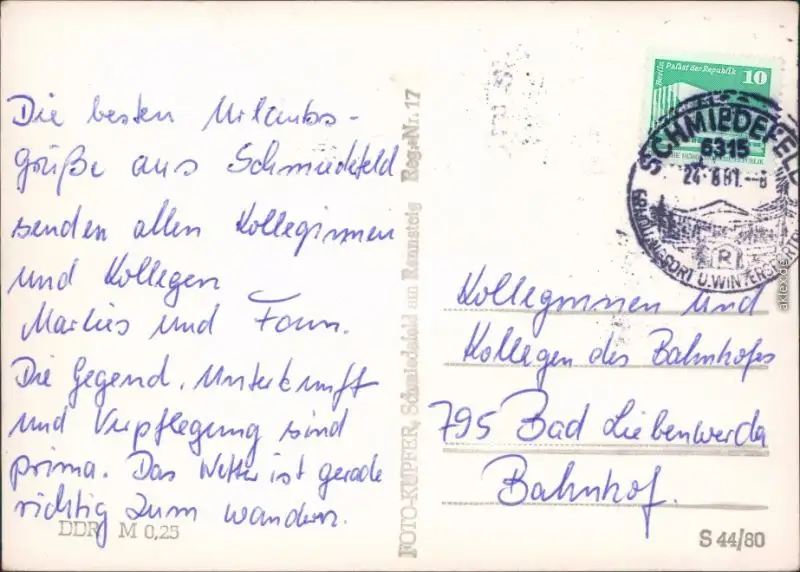 Die besten Urlaubs-
grüße aus Schmiedefeld
senden allen Kolleginnen
und Kollegen
Marlies und Fam.
Die Gegend, Unterkunft
und Verpflegung sind
prima. Das Wetter ist gerade
richtig zum wandern.
DDR M 0,25
FOTO-KÜPFER, Schmiedefeld am Rennsteig Reg.-Nr. 17
Berlin Palast der Republik 10
SCHMIEDEFELD
6315
24.-6.81.--8
R
ERHOLUNGSORT U. WINTERSPORT
Kolleginnen und
Kollegen des Bahnhofes
795 Bad Liebenwerda
Bahnhof.
S 44/80